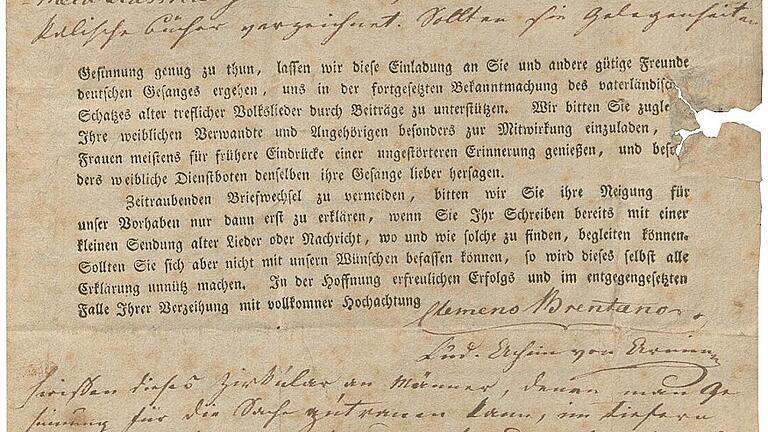 kalische Bücher verzeichnet. Sollten sie Gelegenheiten
Gesinnung genug zu thun, lassen wir diese Einladung an Sie und andere gütige Freunde
deutschen Gesanges ergehen, uns in der fortgesetzten Bekanntmachung des vaterländisc
Schatzes alter treflicher Volkslieder durch Beiträge zu unterstützen. Wir bitten Sie zugle
Ihre weiblichen Verwandte und Angehörigen besonders zur Mitwirkung einzuladen,
Frauen meistens für frühere Eindrücke einer ungestörteren Erinnerung genießen, und beso
ders weibliche Dienstboten denselben ihre Gesänge lieber hersagen.
Zeitraubenden Briefwechsel zu vermeiden, bitten wir Sie ihre Neigung für
unser Vorhaben nur dann erst zu erklären, wenn Sie Ihr Schreiben bereits mit einer
kleinen Sendung alter Lieder oder Nachricht, wo und wie solche zu finden, begleiten können.
Sollten Sie sich aber nicht mit unsern Wünschen befassen können, so wird dieses selbst alle
Erklärung unnütz machen. In der Hoffnung erfreulichen Erfolgs und im entgegengesetzten
Falle Ihrer Verzeihung mit vollkomner Hochachtung
Clemens Brentano.
Lud. Achim von Arnim
dieses Zirkular an Männer, denen man Ge
sinnung für die Sache zutrauen kann, im tiefern